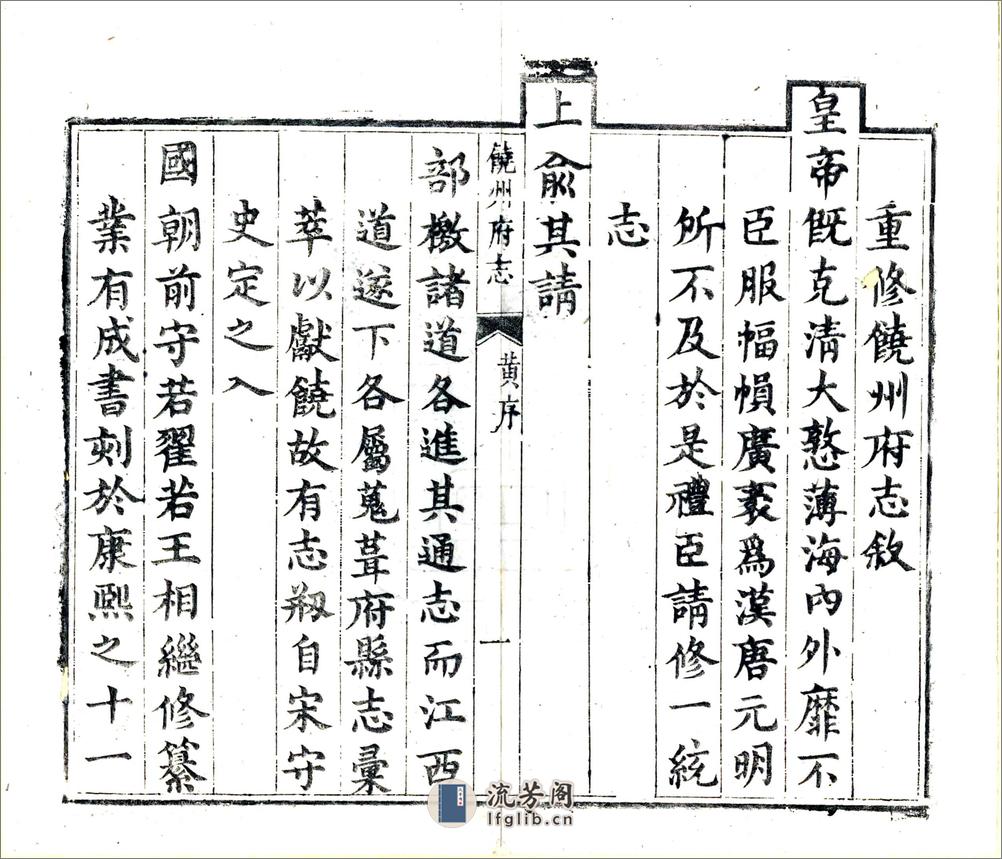 重修饒州府志敘
皇帝旣克清大憝薄海內外靡不
臣服幅幀廣袤爲漢唐元明
所不及於是禮臣請修一統
志
上俞其請
饒州府志 黄序 一
部檄諸道各進其通志而江西
道遂下各屬蒐葺府縣志彙
萃以獻饒故有志剏自宋守
史定之入
國朝前守若翟若王相繼修纂
業有成書刻於康熙之十一
流芳阁
lfglib.cn